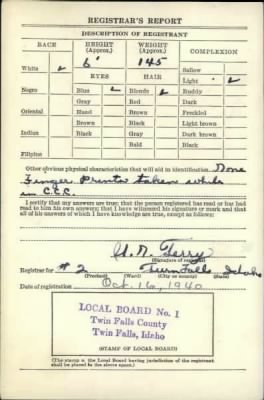 REGISTRAR'S REPORT
DESCRIPTION OF REGISTRANT
RACE HEIGHT (Approx.) WEIGHT (Approx.) COMPLEXION
6' 145
White ✓ Sallow
EYES HAIR Light ✓
Negro Blue ✓ Blonde ✓ Ruddy
Gray Red Dark
Oriental Hazel Brown Freckled
Brown Black Light brown
Indian Black Gray Dark brown
Bald Black
Filipino
Other obvious physical characteristics that will aid in identification None
Finger Prints taken while
in C.C.C.
I certify that my answers are true; that the person registered has read or has had
read to him his own answers; that I have witnessed his signature or mark and that
all of his answers of which I have knowledge are true, except as follows:
Terry
(Signature of registrar)
Registrar for # 2 Twin Falls Idaho
(Precinct) (Ward) (City or county) (State)
Date of registration Oct. 16, 1940
LOCAL BOARD No. 1
Twin Falls County
Twin Falls, Idaho
(STAMP OF LOCAL BOARD)
(The stamp of the Local Board having jurisdiction of the registrant
shall be placed in the above space.)